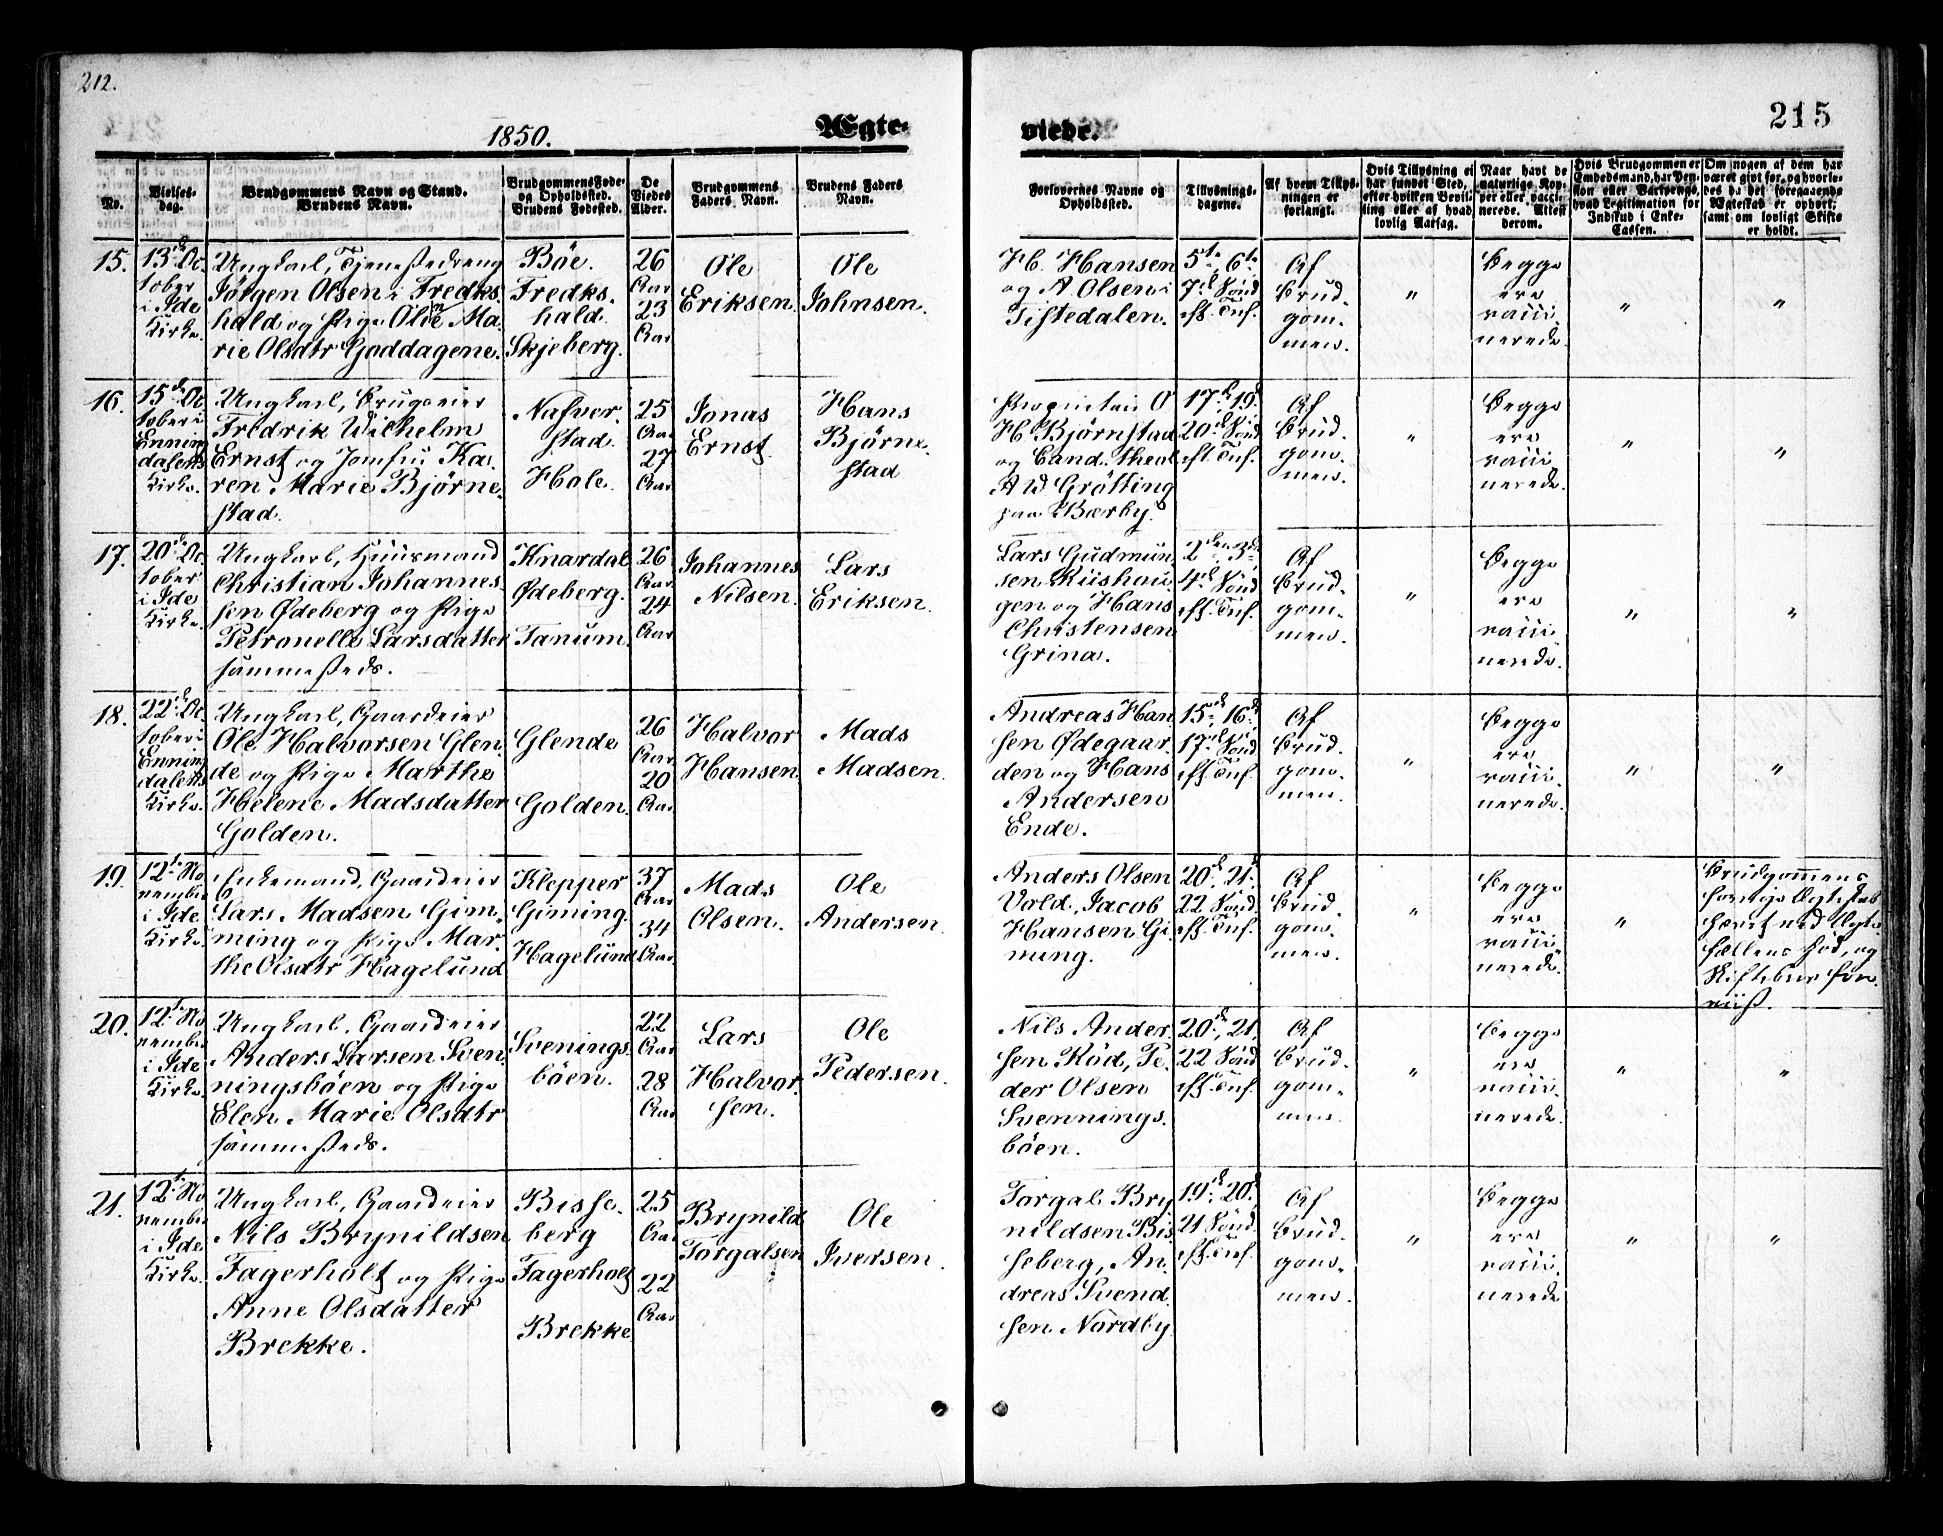 212.
215
1850.
Ægte-
viede.
No.
Vielses-
dag.
Brudgommens Navn og Stand.
Brudens Navn.
Brudgommens Føde-
og Opholdssted.
Brudens Fødested.
De
Viedes
Alder.
Brudgommens
Faders Navn.
Brudens Faders
Navn.
Forlovernes Navne og
Opholdssted.
Tillysnings-
dagene.
Af hvem Tillys-
ningen er
forlangt.
Hvis Tillysning ei
har fundet Sted,
efter hvilken Bevil-
ling eller af hvad
lovlig Aarsag.
Naar havt de
naturlige Kop-
per eller vacci-
nerede. Attest
derom.
Hvis Brudgommen er
Embedsmand, har Pen-
sion eller Vartpenge,
hvad Legitimation for
Indskud i Enke-
Cassen.
Om nogen af dem har
været gift før, og hvorle-
des da det foregaaende
Ægteskab er ophørt;
samt om lovligt Skifte
er holdt.
15.
13de Oc
tober
i Ide
Kirke.
Ungkarl, Tjenestedreng
Jörgen Olsen i Fredks-
hald og Pige Oline Ma-
rie Olsdtr Goddagene.
Böe.
Fredks-
hald.
Skjeberg.
26
Aar
23
Aar
Ole
Eriksen
Ole
Johnsen.
H. Hansen
og A Olsen i
Tistedalen.
5te, 6te
7de Sönd
eft. Trif.
Af
Brud-
gom-
men.
"
Begge
ere
vacci
nerede.
"
"
16.
15de Oc
tober i
Ennin
dalens
Kirke.
Ungkarl, Brugseier
Fredrik Wilhelm
Ernst og Jomfru Ka-
ren Marie Björne-
stad.
Nafver-
stad.
Hole.
25
Aar
27
Aar
Jonas
Ernst.
Hans
Björne-
stad
Proprietair O
H Björnstad
og Cand. theol.
A W Grötting
paa Bærby.
17de, 19de
20de Sönd
eft. Trif.
Af
Brud-
gom-
men.
"
Begge
ere
vacci
nerede.
"
"
17.
20de Oc
tober
i Ide
Kirke.
Ungkarl, Huusmand
Christian Johannes-
sen Ödeberg og Pige
Petronelle Larsdatter
sammesteds.
Knardal
Ödeberg.
Tanum.
26
Aar
24
Aar
Johannes
Nilsen.
Lars
Eriksen.
Lars Gudmun
sen Riishau
gen og Hans
Christensen
Grina.
2den, 3die
4de Sönd
eft. Trif.
Af
Brud-
gom-
men.
"
Begge
ere
vacci
nerede.
"
"
18.
22de Oc
tober i
Ennin
dalens
Kirke.
Ungkarl, Gaardeier
Ole Halvorsen Glen-
de og Pige Marthe
Helene Madsdatter
Golden.
Glende
Golden.
26
Aar
20
Aar
Halvor
Hansen
Mads
Madsen.
Andreas Han
sen Ödegaar-
den og Hans
Andersen
Ende.
15de, 16de
17de Sönd
eft. Trif.
Af
Brud-
gom-
men.
"
Begge
ere
vacci
nerede.
"
"
19.
12te No
vember
i Ide
Kirke.
Enkemand, Gaardeier
Lars Madsen Gim-
ming og Pige Mar-
the Olsdtr Hagelund
Klepper
Giming.
Hagelund
37
Aar
34
Aar
Mads
Olsen.
Ole
Andersen.
Anders Olsen
Vold, Jacob
Hansen Gi
ming.
20de, 21.
22 Sönd.
eft. Trif.
Af
Brud-
gom-
men.
"
Begge
ere
vacci
nerede.
"
Brudgommens
forrige Ægteskab
hævet ved Ægte-
fællens Död, og
Skiftebrev fore-
viist.
20.
12te No
vember
i Ide
Kirke.
Ungkarl, Gaardeier
Anders Larsen Sven-
ningsböen og Pige
Elen Marie Olsdtr
sammesteds.
Svenings-
böen.
22
Aar
28
Aar
Lars
Halvor-
sen.
Ole
Pedersen.
Nils Ander-
sen Röd, Pe-
der Olsen
Svennings-
böen.
20de, 21.
22 Sönd
eft. Trif.
Af
Brud-
gom-
men.
"
Begge
ere
vacci
nerede.
"
"
21.
12te No
vember
i Ide
Kirke.
Ungkarl, Gaardeier
Nils Brynildsen
Fagerholt og Pige
Anne Olsdatter
Brekke.
Bisse-
berg
Fagerholt
Brekke
25
Aar
22
Aar
Brynild
Torgalsen
Ole
Iversen.
Torgal Bry
nildsen Bis
seberg, An-
dreas Svend
sen Nordby
19de, 20de
21 Sönd.
eft. Trif.
Af
Brud-
gom-
men.
"
Begge
ere
vacci
nerede
"
"